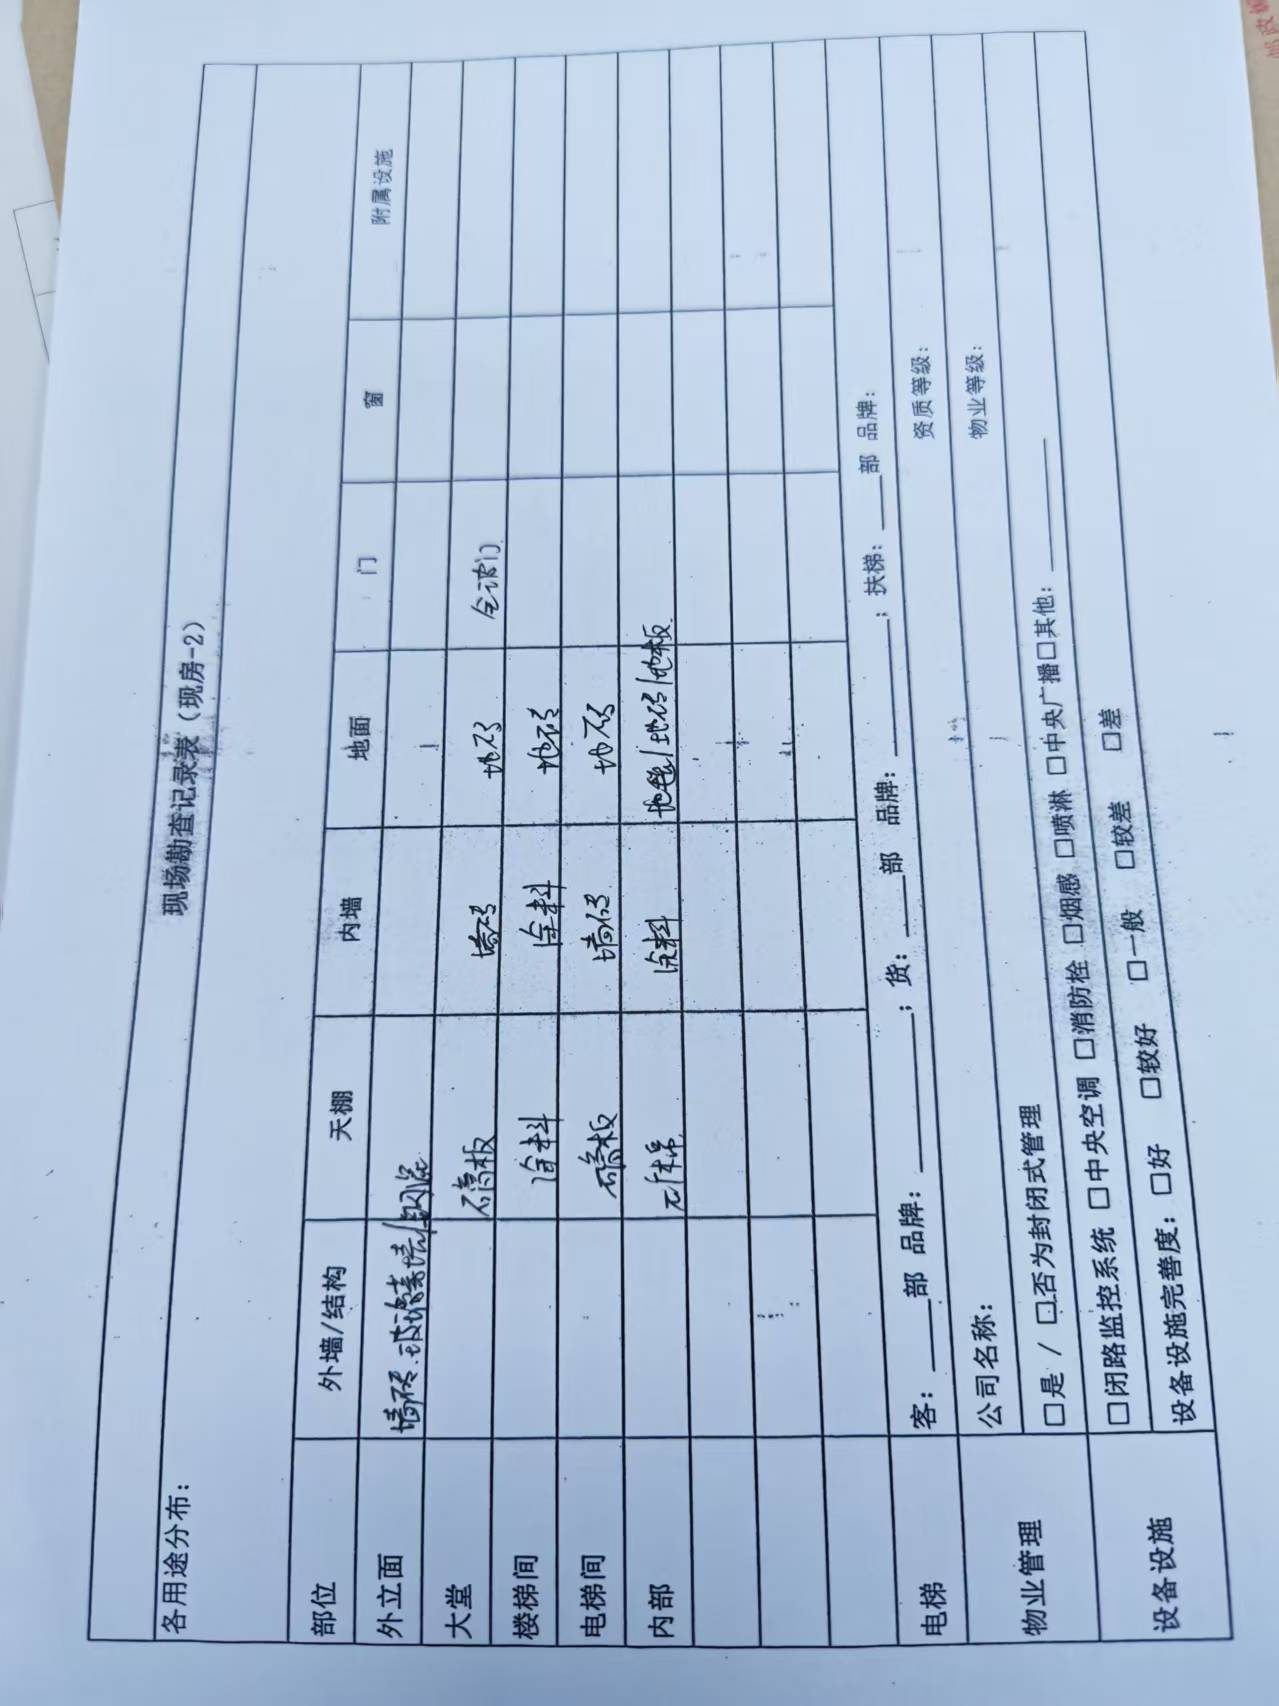 现场勘查记录表（现房-2）
各用途分布：
部位 外墙/结构 天棚 内墙 地面 门 窗 附属设施
外立面 墙砖.玻璃幕墙/
大堂 石膏板 墙砖 地砖 全玻门
楼梯间 涂料 涂料 地砖
电梯间 石膏板 墙砖 地砖
内部 涂料 地毯/地砖/地板
电梯 客：____部 品牌：________；货：____部 品牌：________；扶梯：____部 品牌：
物业管理 公司名称： 资质等级：
□是 / □否为封闭式管理 物业等级：
设备设施 □闭路监控系统 □中央空调 □消防栓 □烟感 □喷淋 □中央广播□其他：________
设备设施完善度：□好 □较好 □一般 □较差 □差